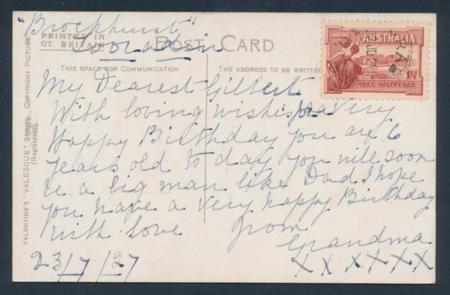 "Brockhurst"
PRINTED IN
GT. BRITAIN
POST CARD
THIS SPACE FOR COMMUNICATION
THE ADDRESS TO BE WRITTEN
AUSTRALIA
THREE HALFPENCE
My Dearest Gilbert
With loving wishes for a Very
Happy Birthday you are 6
years old to day you will soon
be a big man like Dad I hope
you have a very happy Birthday
with love from
Grandma
23/7/27
X X X X X X
VALENTINE'S "VALESQUE" SERIES
(Registered)
COPYRIGHT PICTURE